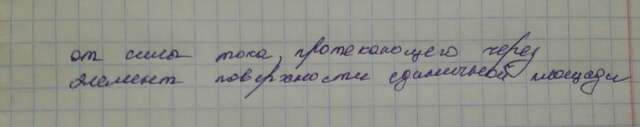 от силы тока, протекающего через
элемент поверхности единичной площади